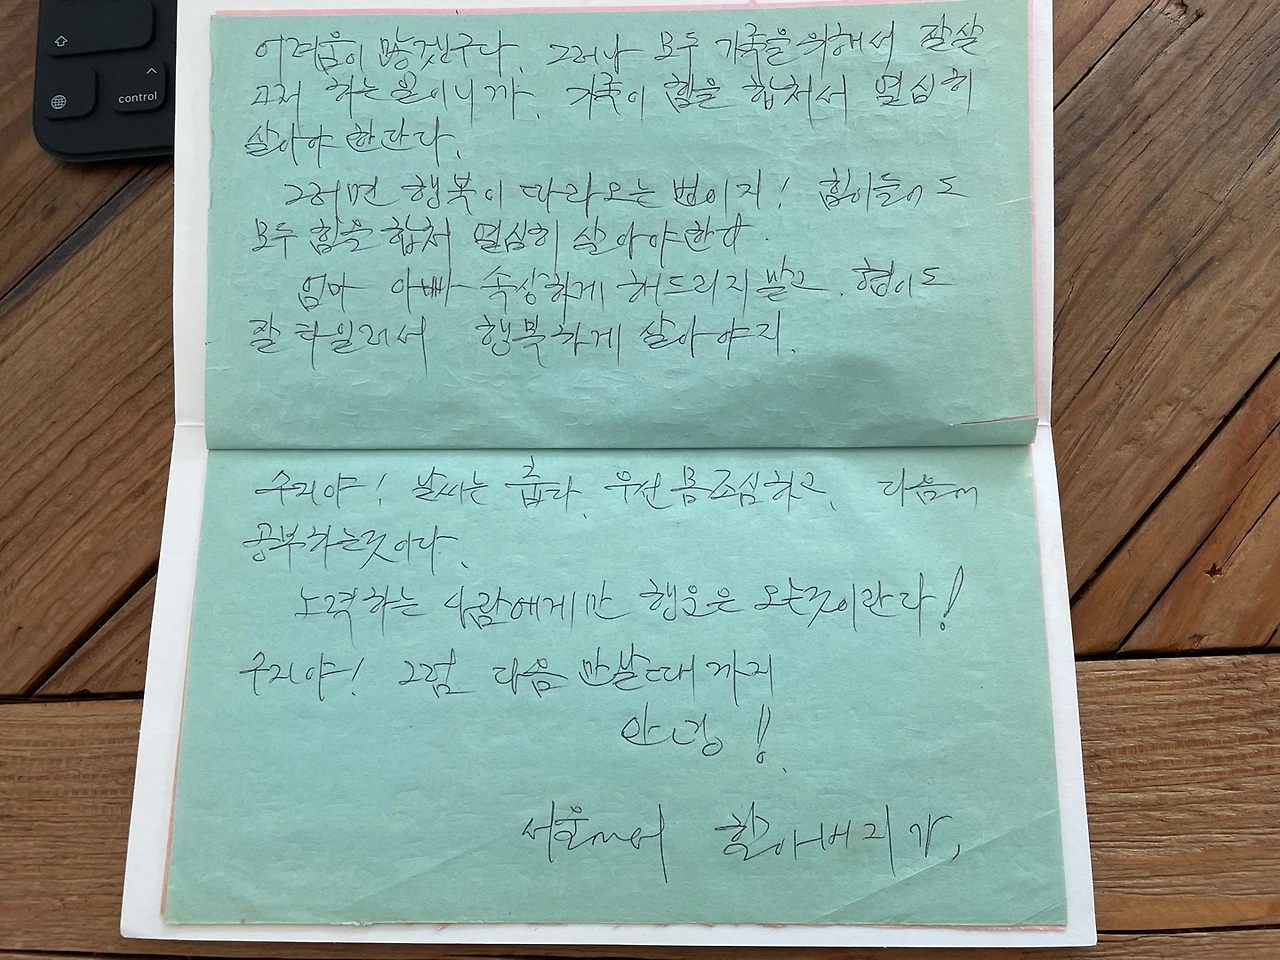 control
어려움이 많겠구나. 그러나 모두 가족을 위해서 잘살
고저 하는 일이니까. 가족이 힘을 합쳐서 열심히
살아야 한단다.
그러면 행복이 따라오는 법이지! 힘이들어도
모두 힘을 합쳐 열심히 살아야한다.
엄마 아빠 속상하게 해드리지말고. 협이도
잘 타일러서 행복하게 살아야지.
수지야! 날씨는 춥다. 우선 몸조심하고, 다음에
공부하는것이다.
노력하는 사람에게만 행운은 오는것이란다!
수지야! 그럼 다음 만날때까지
안녕!
서울에서 할아버지가,